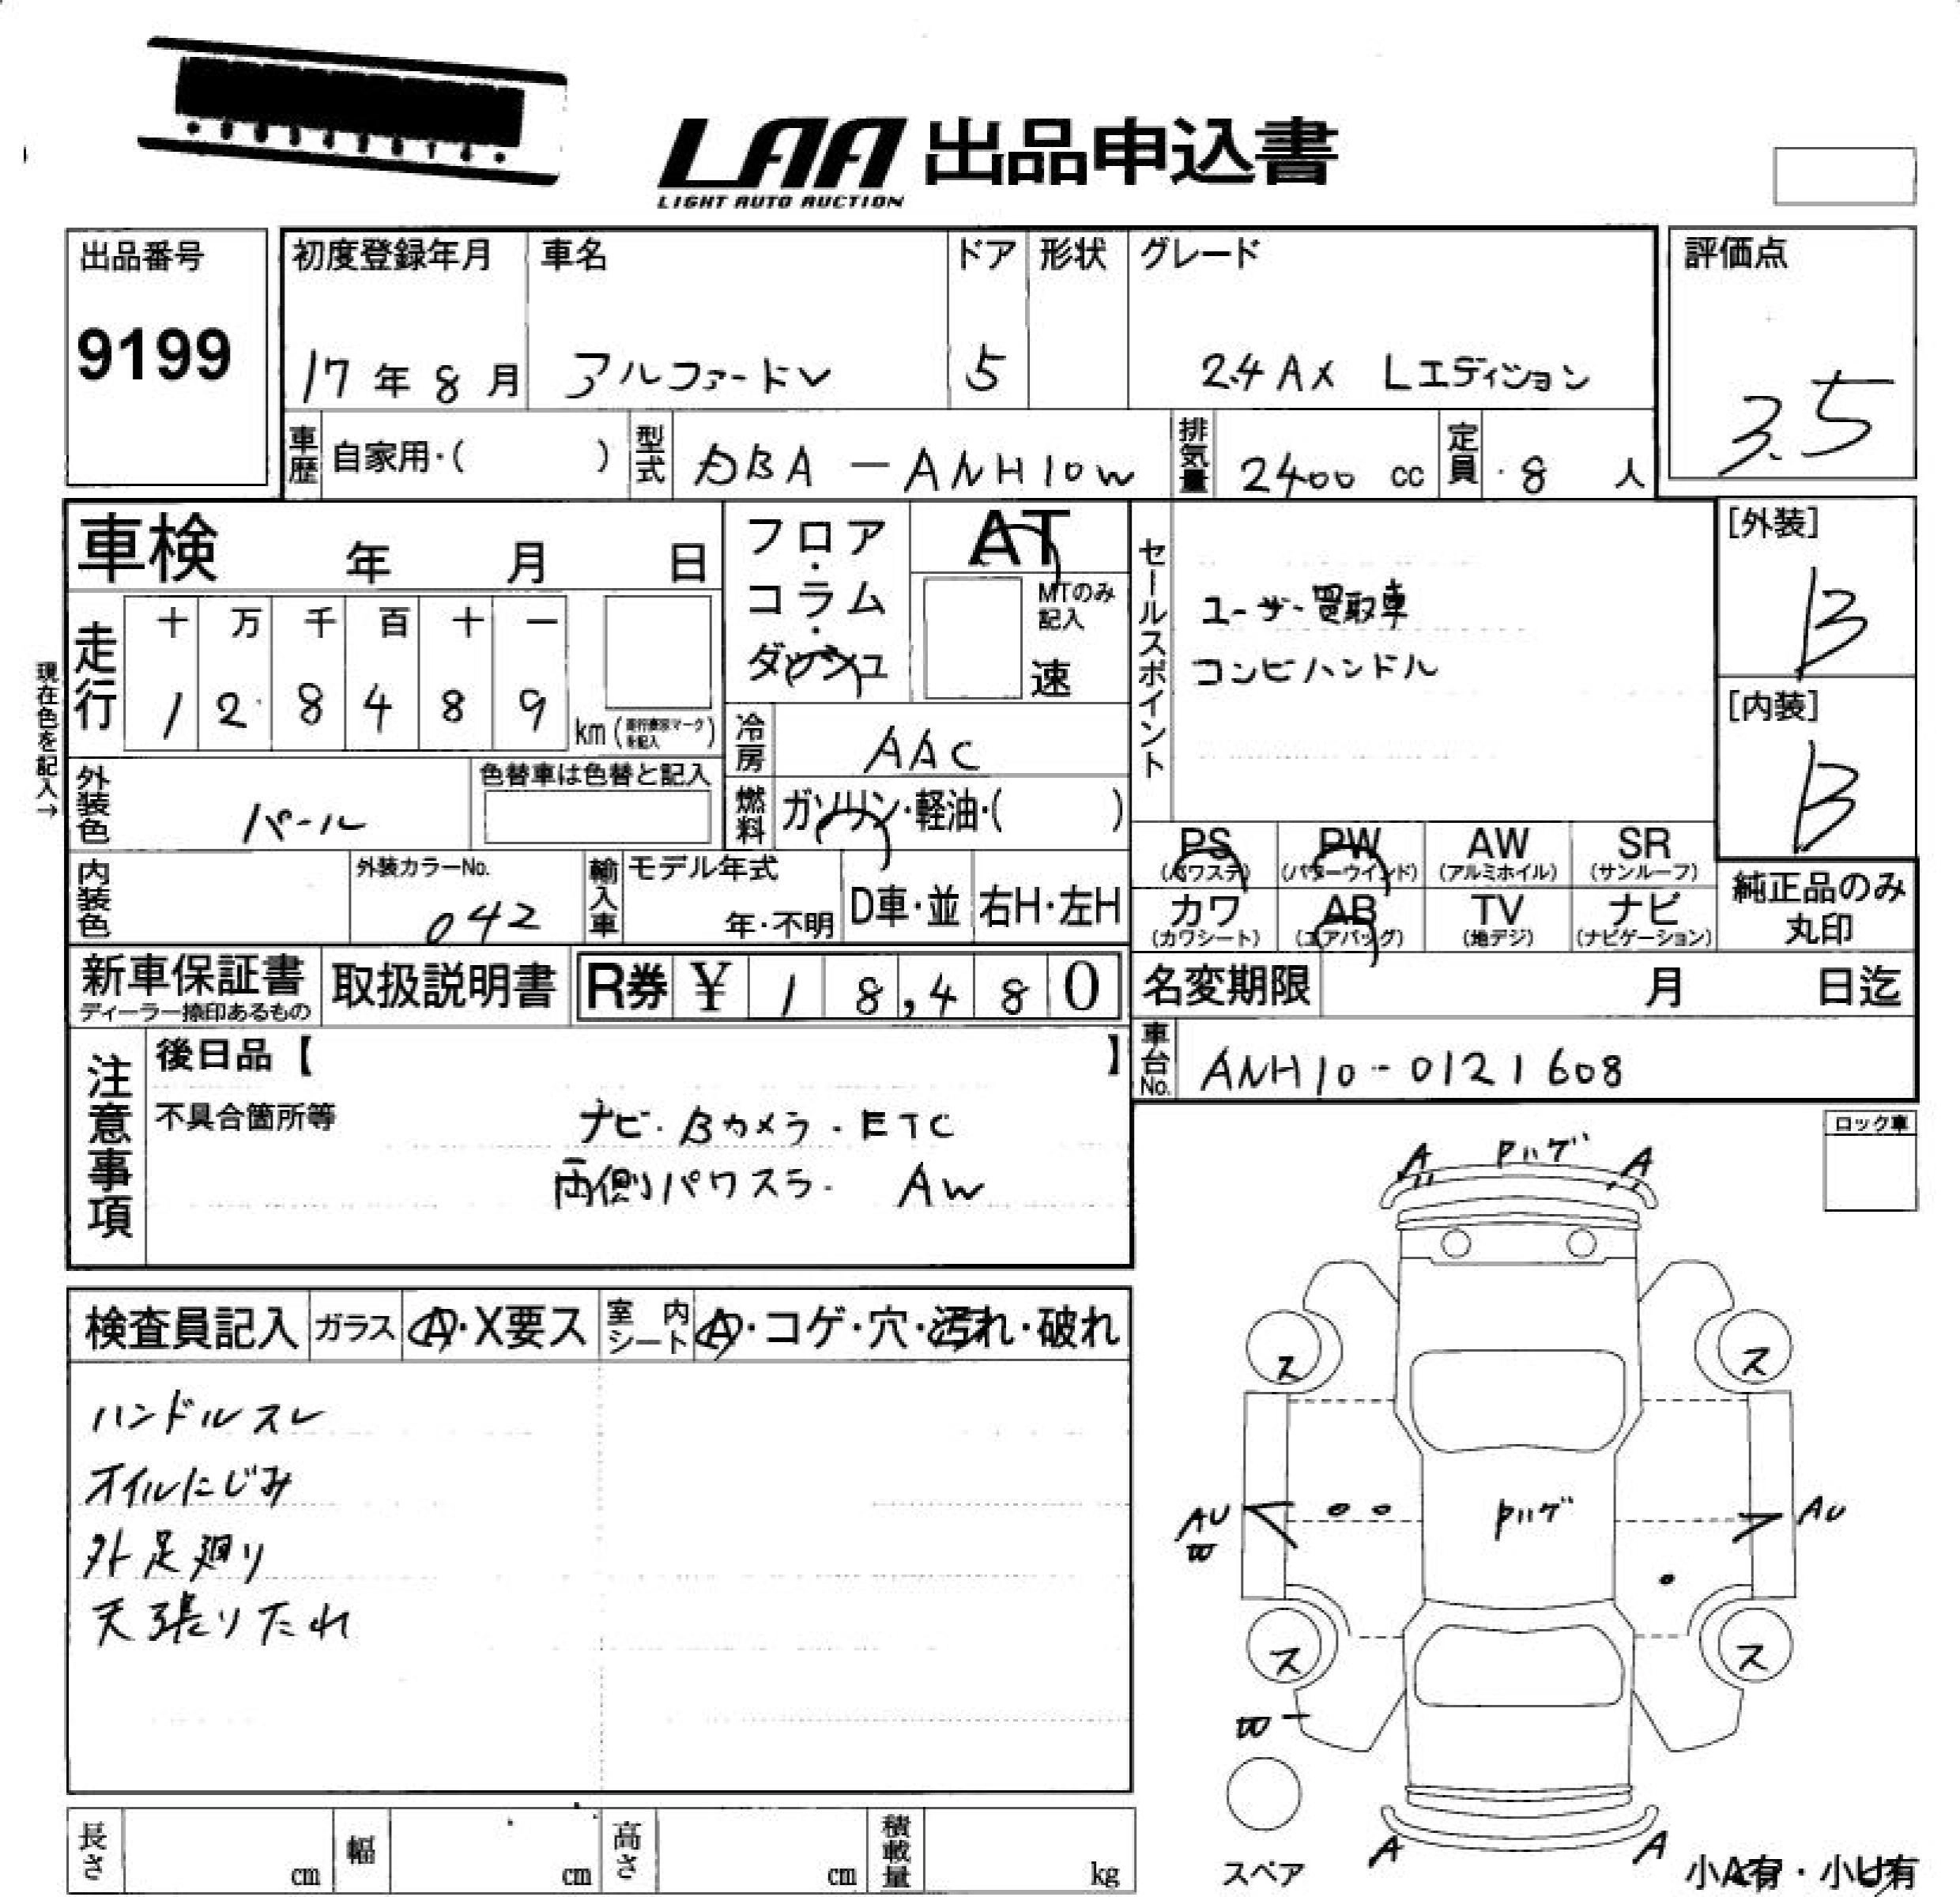 LAA 出品申込書
LIGHT AUTO AUCTION
出品番号
9199
初度登録年月
17年8月
車名
アルファードV
ドア
5
形状
グレード
2.4 AX Lエディション
評価点
3.5
車歴 自家用・( )
型式 DBA-ANH10W
排気量 2400 cc
定員 8 人
車検 年 月 日
フロア・コラム・ダッシュ
AT
MTのみ記入
速
セールスポイント
ユーザー買取車
コンビハンドル
[外装]
B
[内装]
B
現在色を記入→
走行
十 万 千 百 十 一
1 2 8 4 8 9
km
冷房 AAC
外装色 パール
色替車は色替と記入
燃料 ガソリン・軽油・( )
PS (パワステ)
PW (パワーウインド)
AW (アルミホイル)
SR (サンルーフ)
内装色
外装カラーNo.
042
輸入車
モデル年式
年・不明
D車・並
右H・左H
カワ (カワシート)
AB (エアバッグ)
TV (地デジ)
ナビ (ナビゲーション)
純正品のみ丸印
新車保証書
ディーラー捺印あるもの
取扱説明書
R券 ¥ 18,480
名変期限 月 日迄
車台No. ANH10-0121608
注意事項
後日品【 】
不具合箇所等
ナビ・Bカメラ・ETC
両側パワスラ・ AW
ロック車
A Pハゲ A
検査員記入
ガラス A・X要ス
室内シート A・コゲ・穴・汚れ・破れ
ハンドルスレ
オイルにじみ
外足廻り
天張りたれ
ス ス
AU Pハゲ AU
ス ス
スペア
A A
小A有・小U有
長さ cm
幅 cm
高さ cm
積載量 kg